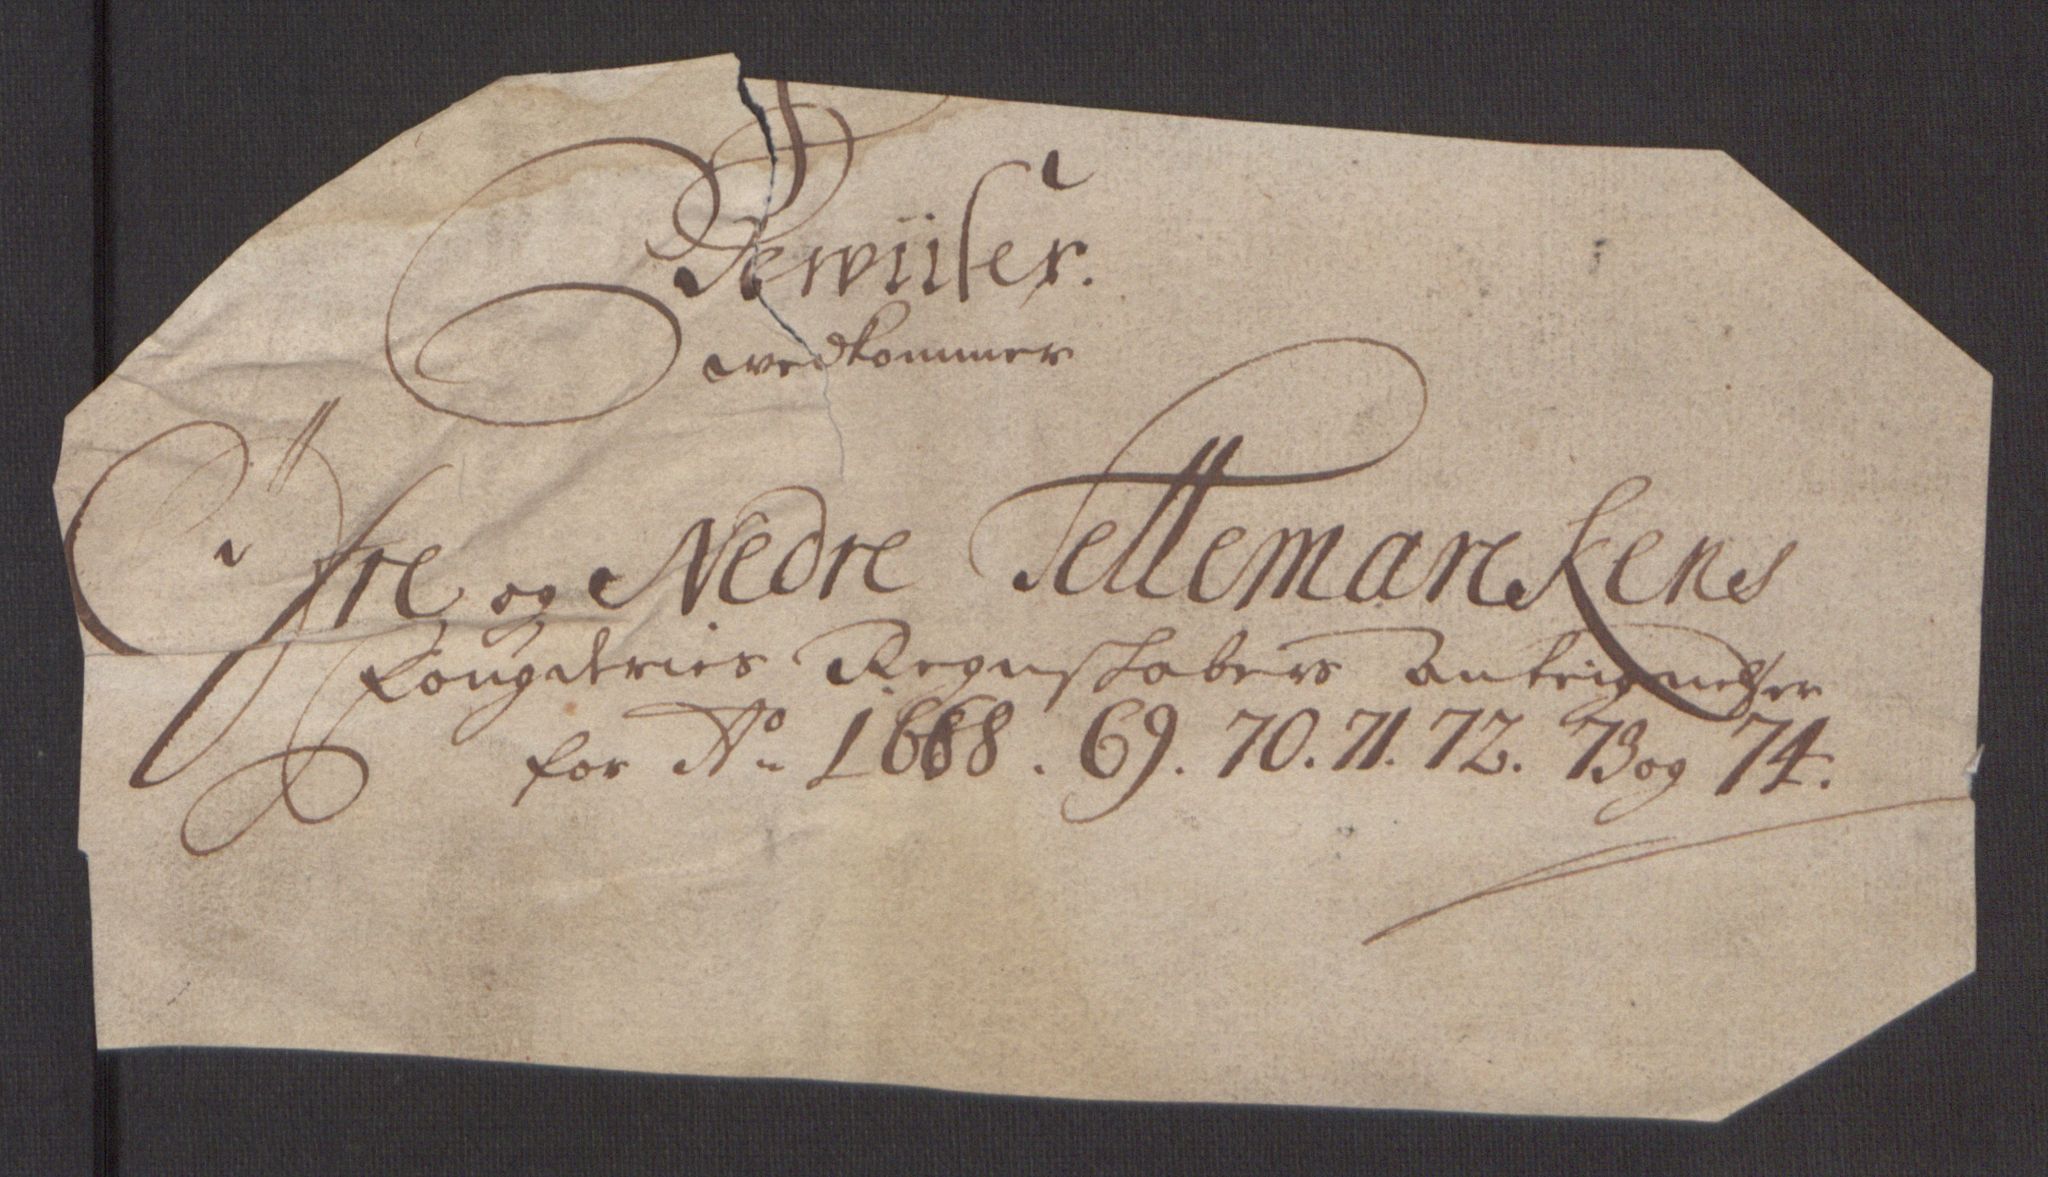 Bewiiser.
vedkommer
Øfre og Nedre Tellemarckens
fougderies Regnskabers Anteignelser
for Aō 1668. 69. 70. 71. 72. 73 og 74.